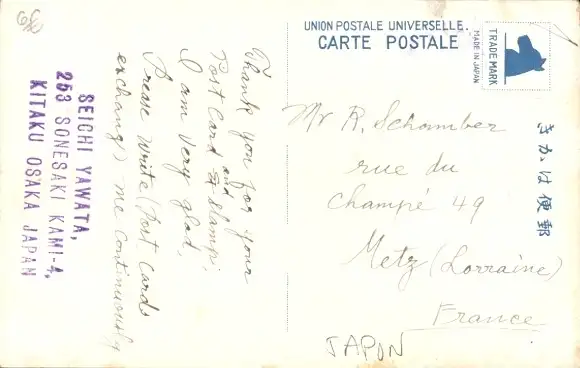 UNION POSTALE UNIVERSELLE.
CARTE POSTALE
TRADE MARK
MADE IN JAPAN
きかは便郵
Thank you for your
and
Post Card & Stamp,
I am very glad,
Please write (Post Cards
exchange) me continuously
SEICHI YAWATA,
253 SONESAKI KAMI-4,
KITAKU OSAKA JAPAN
Mr R. Schomber
rue du
Champé 49
Metz (Lorraine)
France
JAPON